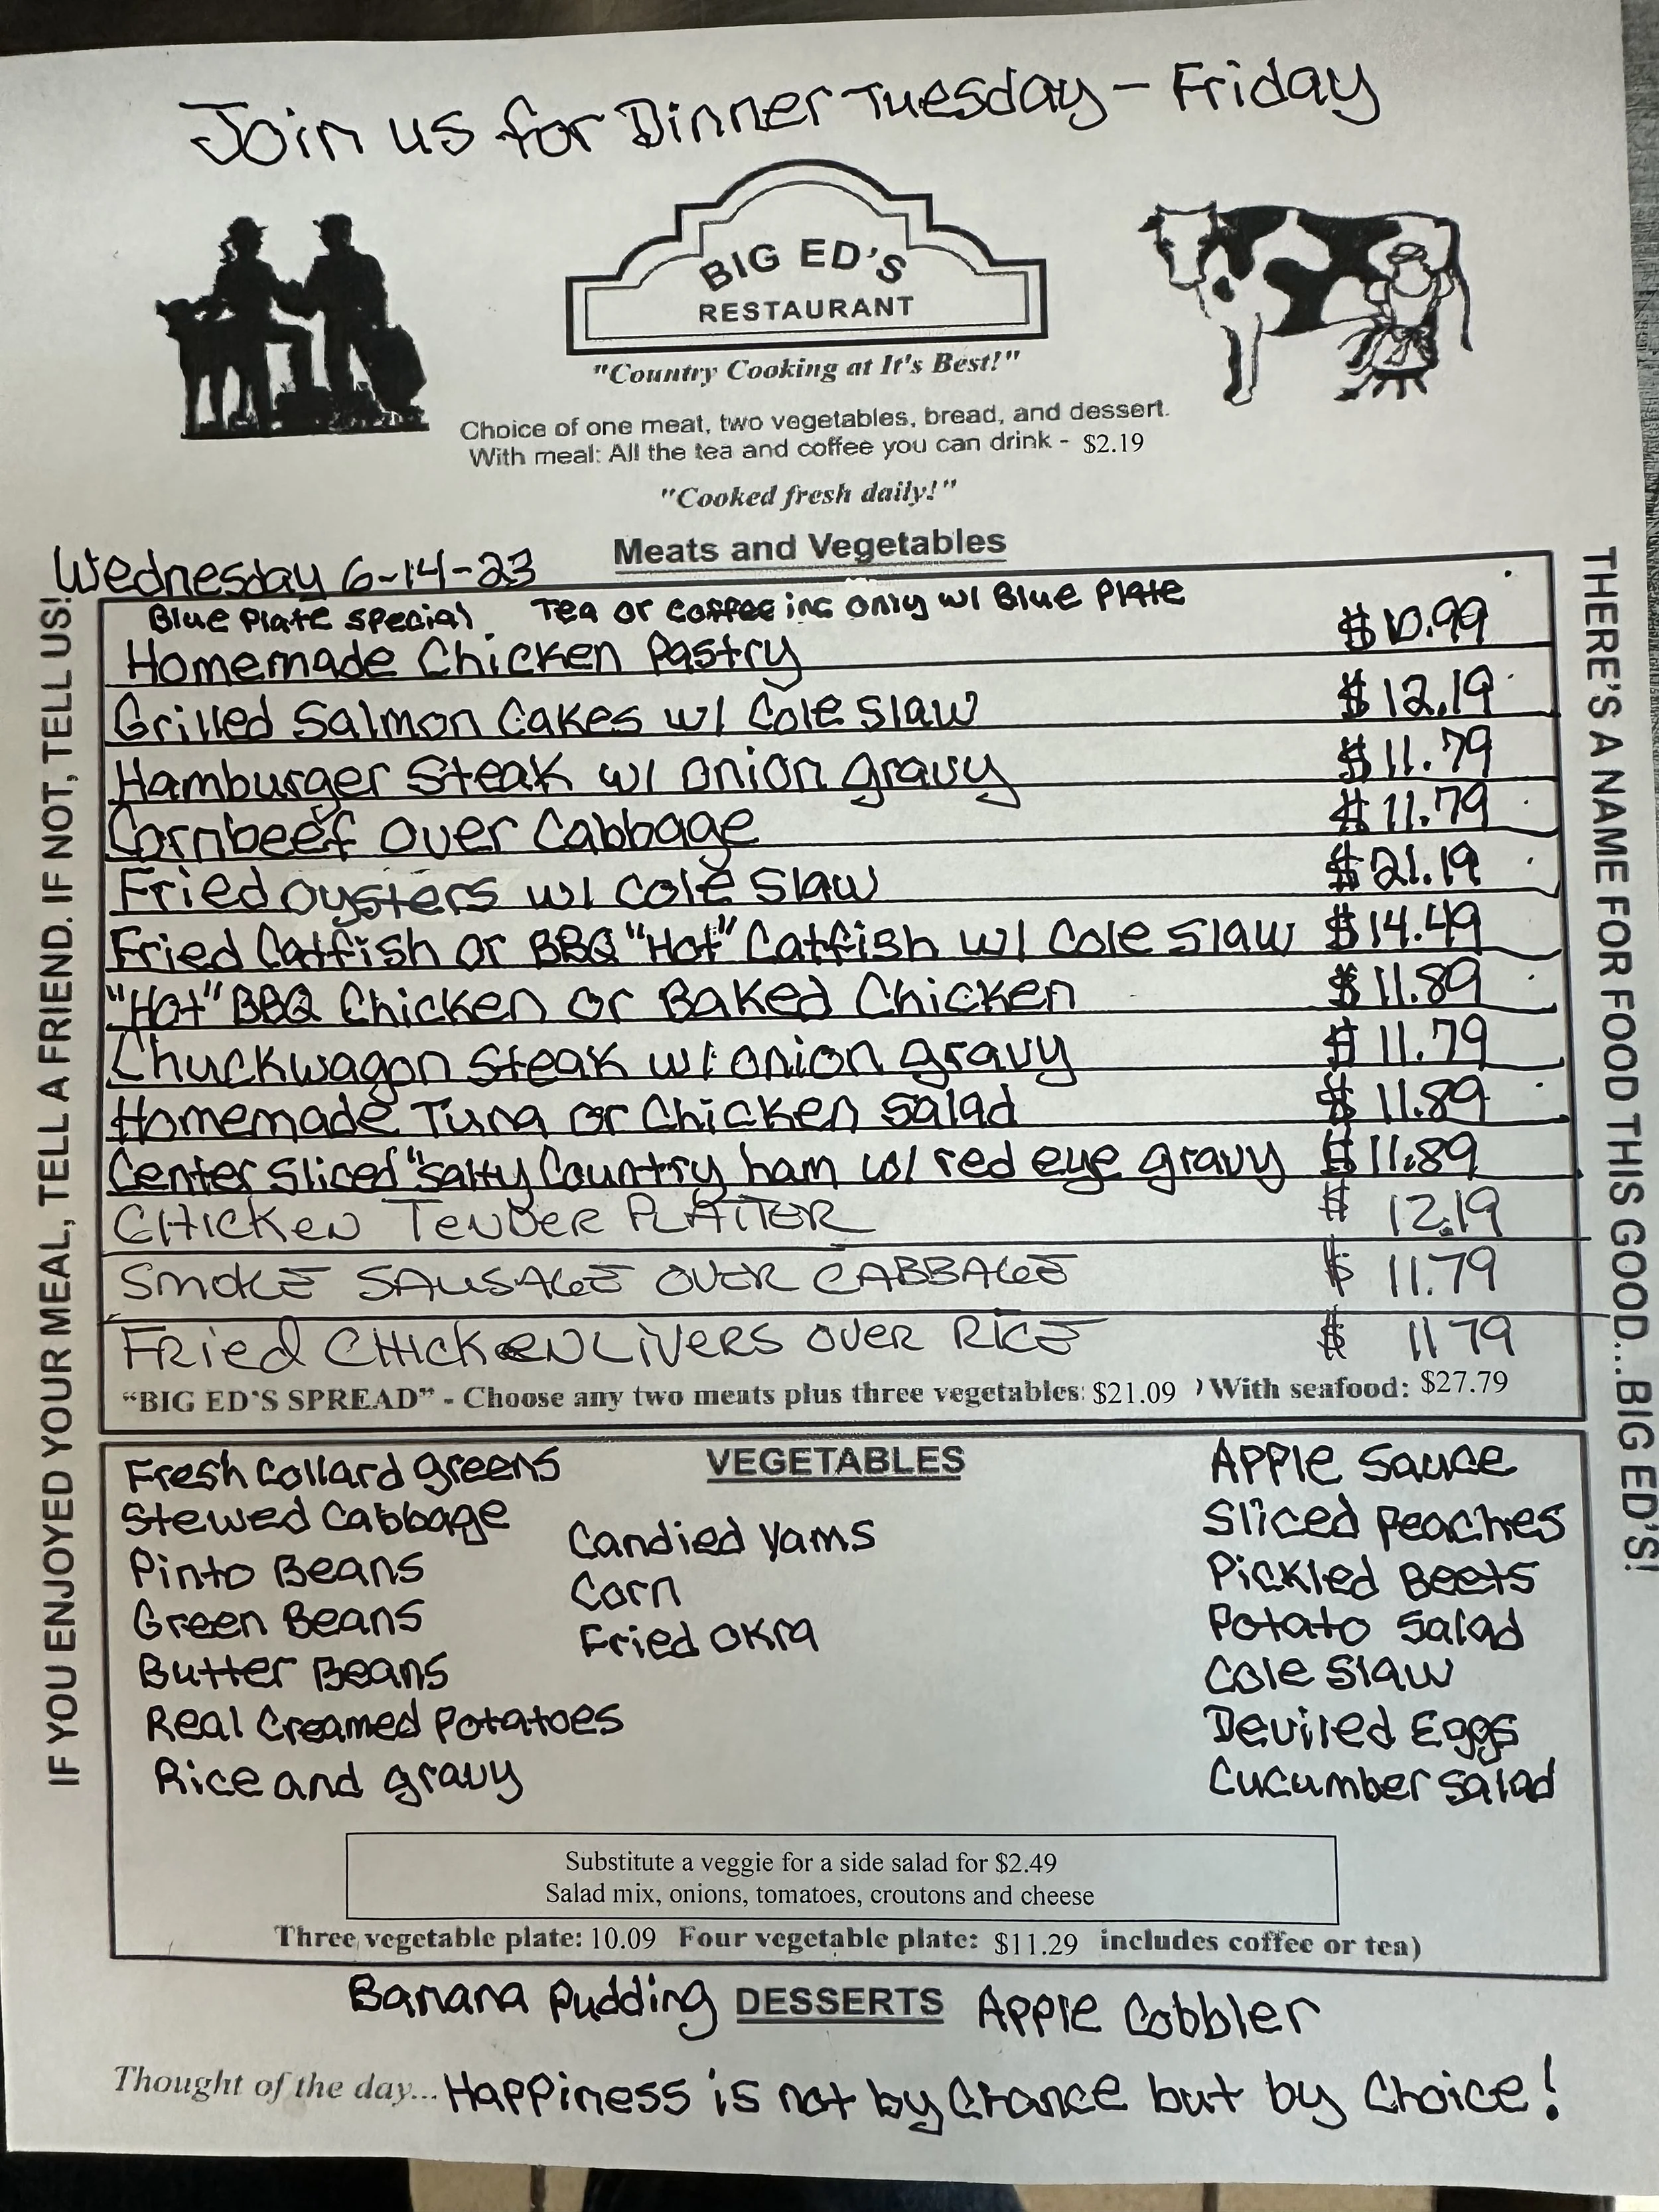 Join us for Dinner Tuesday - Friday
BIG ED'S
RESTAURANT
"Country Cooking at It's Best!"
Choice of one meat, two vegetables, bread, and dessert.
With meal: All the tea and coffee you can drink - $2.19
"Cooked fresh daily!"
Meats and Vegetables
Wednesday 6-14-23
Blue Plate special. Tea or coffee inc only w/ Blue Plate
Homemade Chicken Pastry $10.99
Grilled Salmon Cakes w/ Cole Slaw $12.19
Hamburger Steak w/ onion gravy $11.79
Cornbeef over Cabbage $11.79
Fried oysters w/ Cole Slaw $21.19
Fried Catfish or BBQ "Hot" Catfish w/ Cole Slaw $14.49
"Hot" BBQ Chicken or Baked Chicken $11.89
Chuckwagon Steak w/ onion gravy $11.79
Homemade Tuna or Chicken Salad $11.89
Center Sliced "Salty Country ham w/ red eye gravy $11.89
CHICKEN TENDER PLATTER $ 12.19
SMOKE SAUSAGE OVER CABBAGE $ 11.79
FRied CHICKEN LIVERS OVER RICE $ 11 79
"BIG ED'S SPREAD" - Choose any two meats plus three vegetables: $21.09 ) With seafood: $27.79
VEGETABLES
Fresh Collard greens
Stewed Cabbage
Pinto Beans
Green Beans
Butter Beans
Real Creamed Potatoes
Rice and gravy
Candied Yams
Corn
Fried Okra
Apple Sauce
Sliced Peaches
Pickled Beets
Potato Salad
Cole Slaw
Deviled Eggs
Cucumber Salad
Substitute a veggie for a side salad for $2.49
Salad mix, onions, tomatoes, croutons and cheese
Three vegetable plate: 10.09 Four vegetable plate: $11.29 includes coffee or tea)
Banana Pudding DESSERTS Apple Cobbler
Thought of the day... Happiness is not by Chance but by Choice!
IF YOU ENJOYED YOUR MEAL, TELL A FRIEND. IF NOT, TELL US!
THERE'S A NAME FOR FOOD THIS GOOD...BIG ED'S!